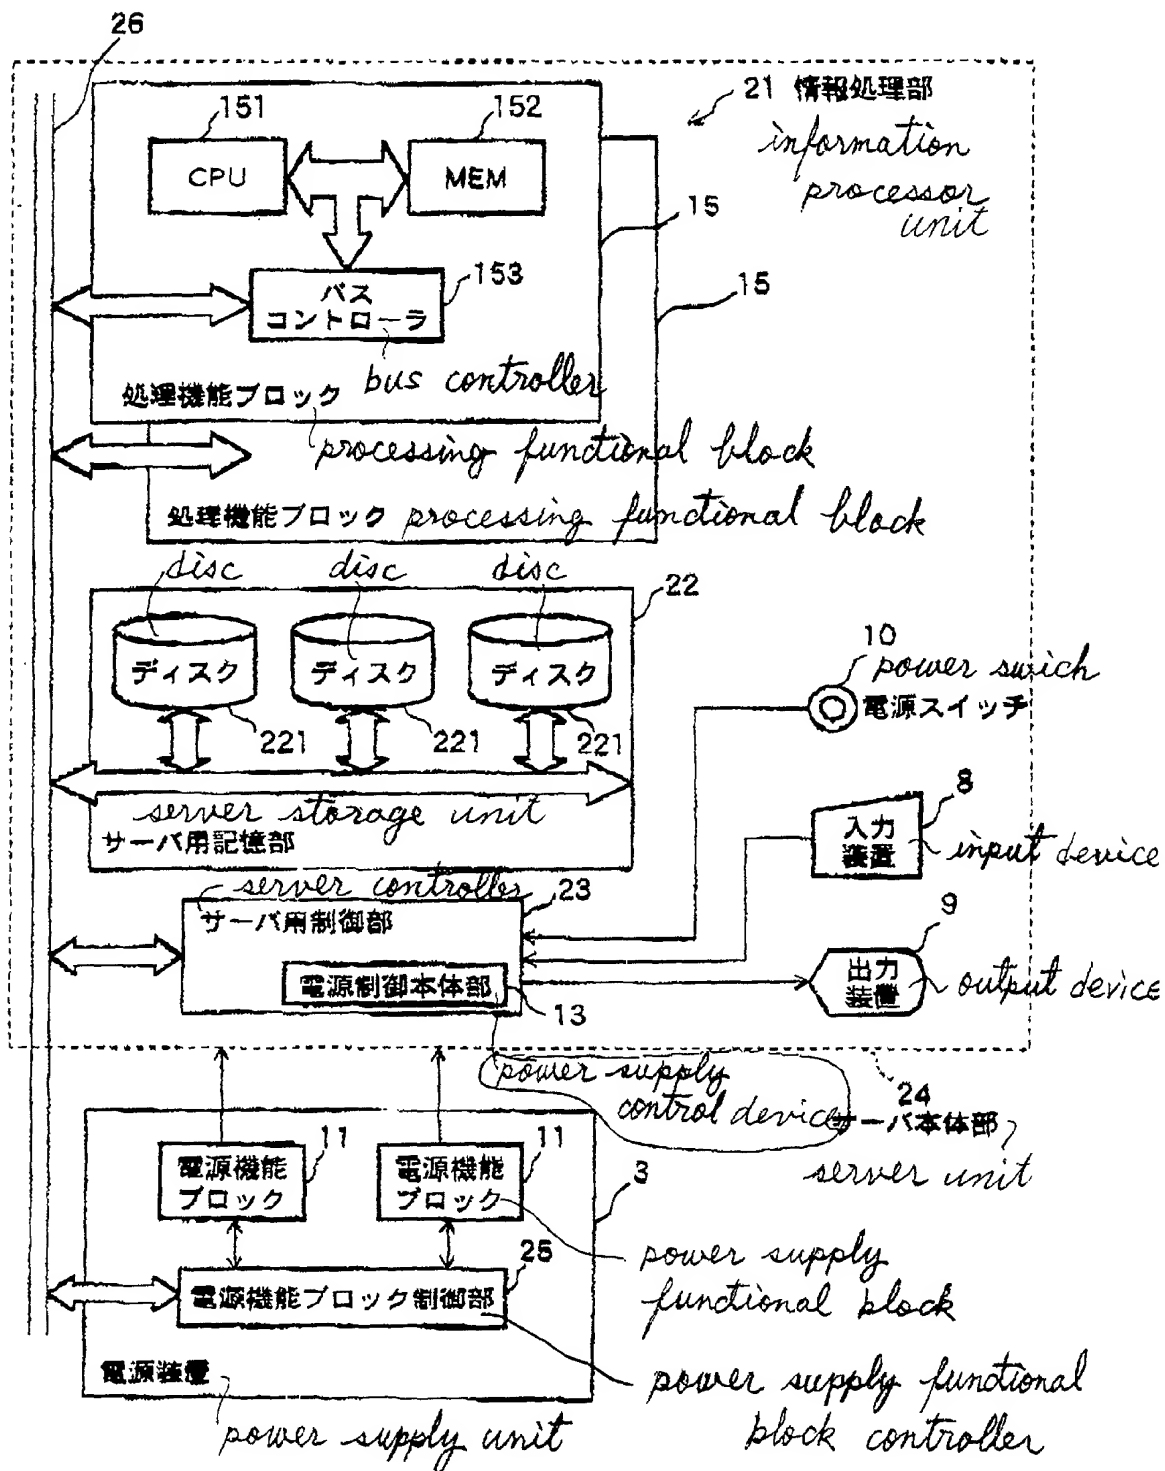 26
21 情報処理部
information
processor
unit
151
152
CPU
MEM
15
15
153
バス
コントローラ
bus controller
処理機能ブロック
processing functional block
処理機能ブロック processing functional block
disc disc disc
22
ディスク ディスク ディスク
221 221 221
server storage unit
サーバ用記憶部
10
power swich
電源スイッチ
8
入力
装置
input device
server controller
23
サーバ用制御部
電源制御本体部
13
9
出力
装置
output device
power supply
control device
24
サーバ本体部
server unit
11 11
電源機能
ブロック
電源機能
ブロック
3
power supply
functional block
25
電源機能ブロック制御部
電源装置
power supply functional
block controller
power supply unit